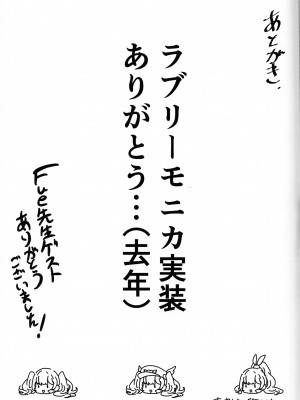 あとがき、
ラブリーモニカ実装
ありがとう…(去年)
Fue先生ゲスト
ありがとう
ございました!